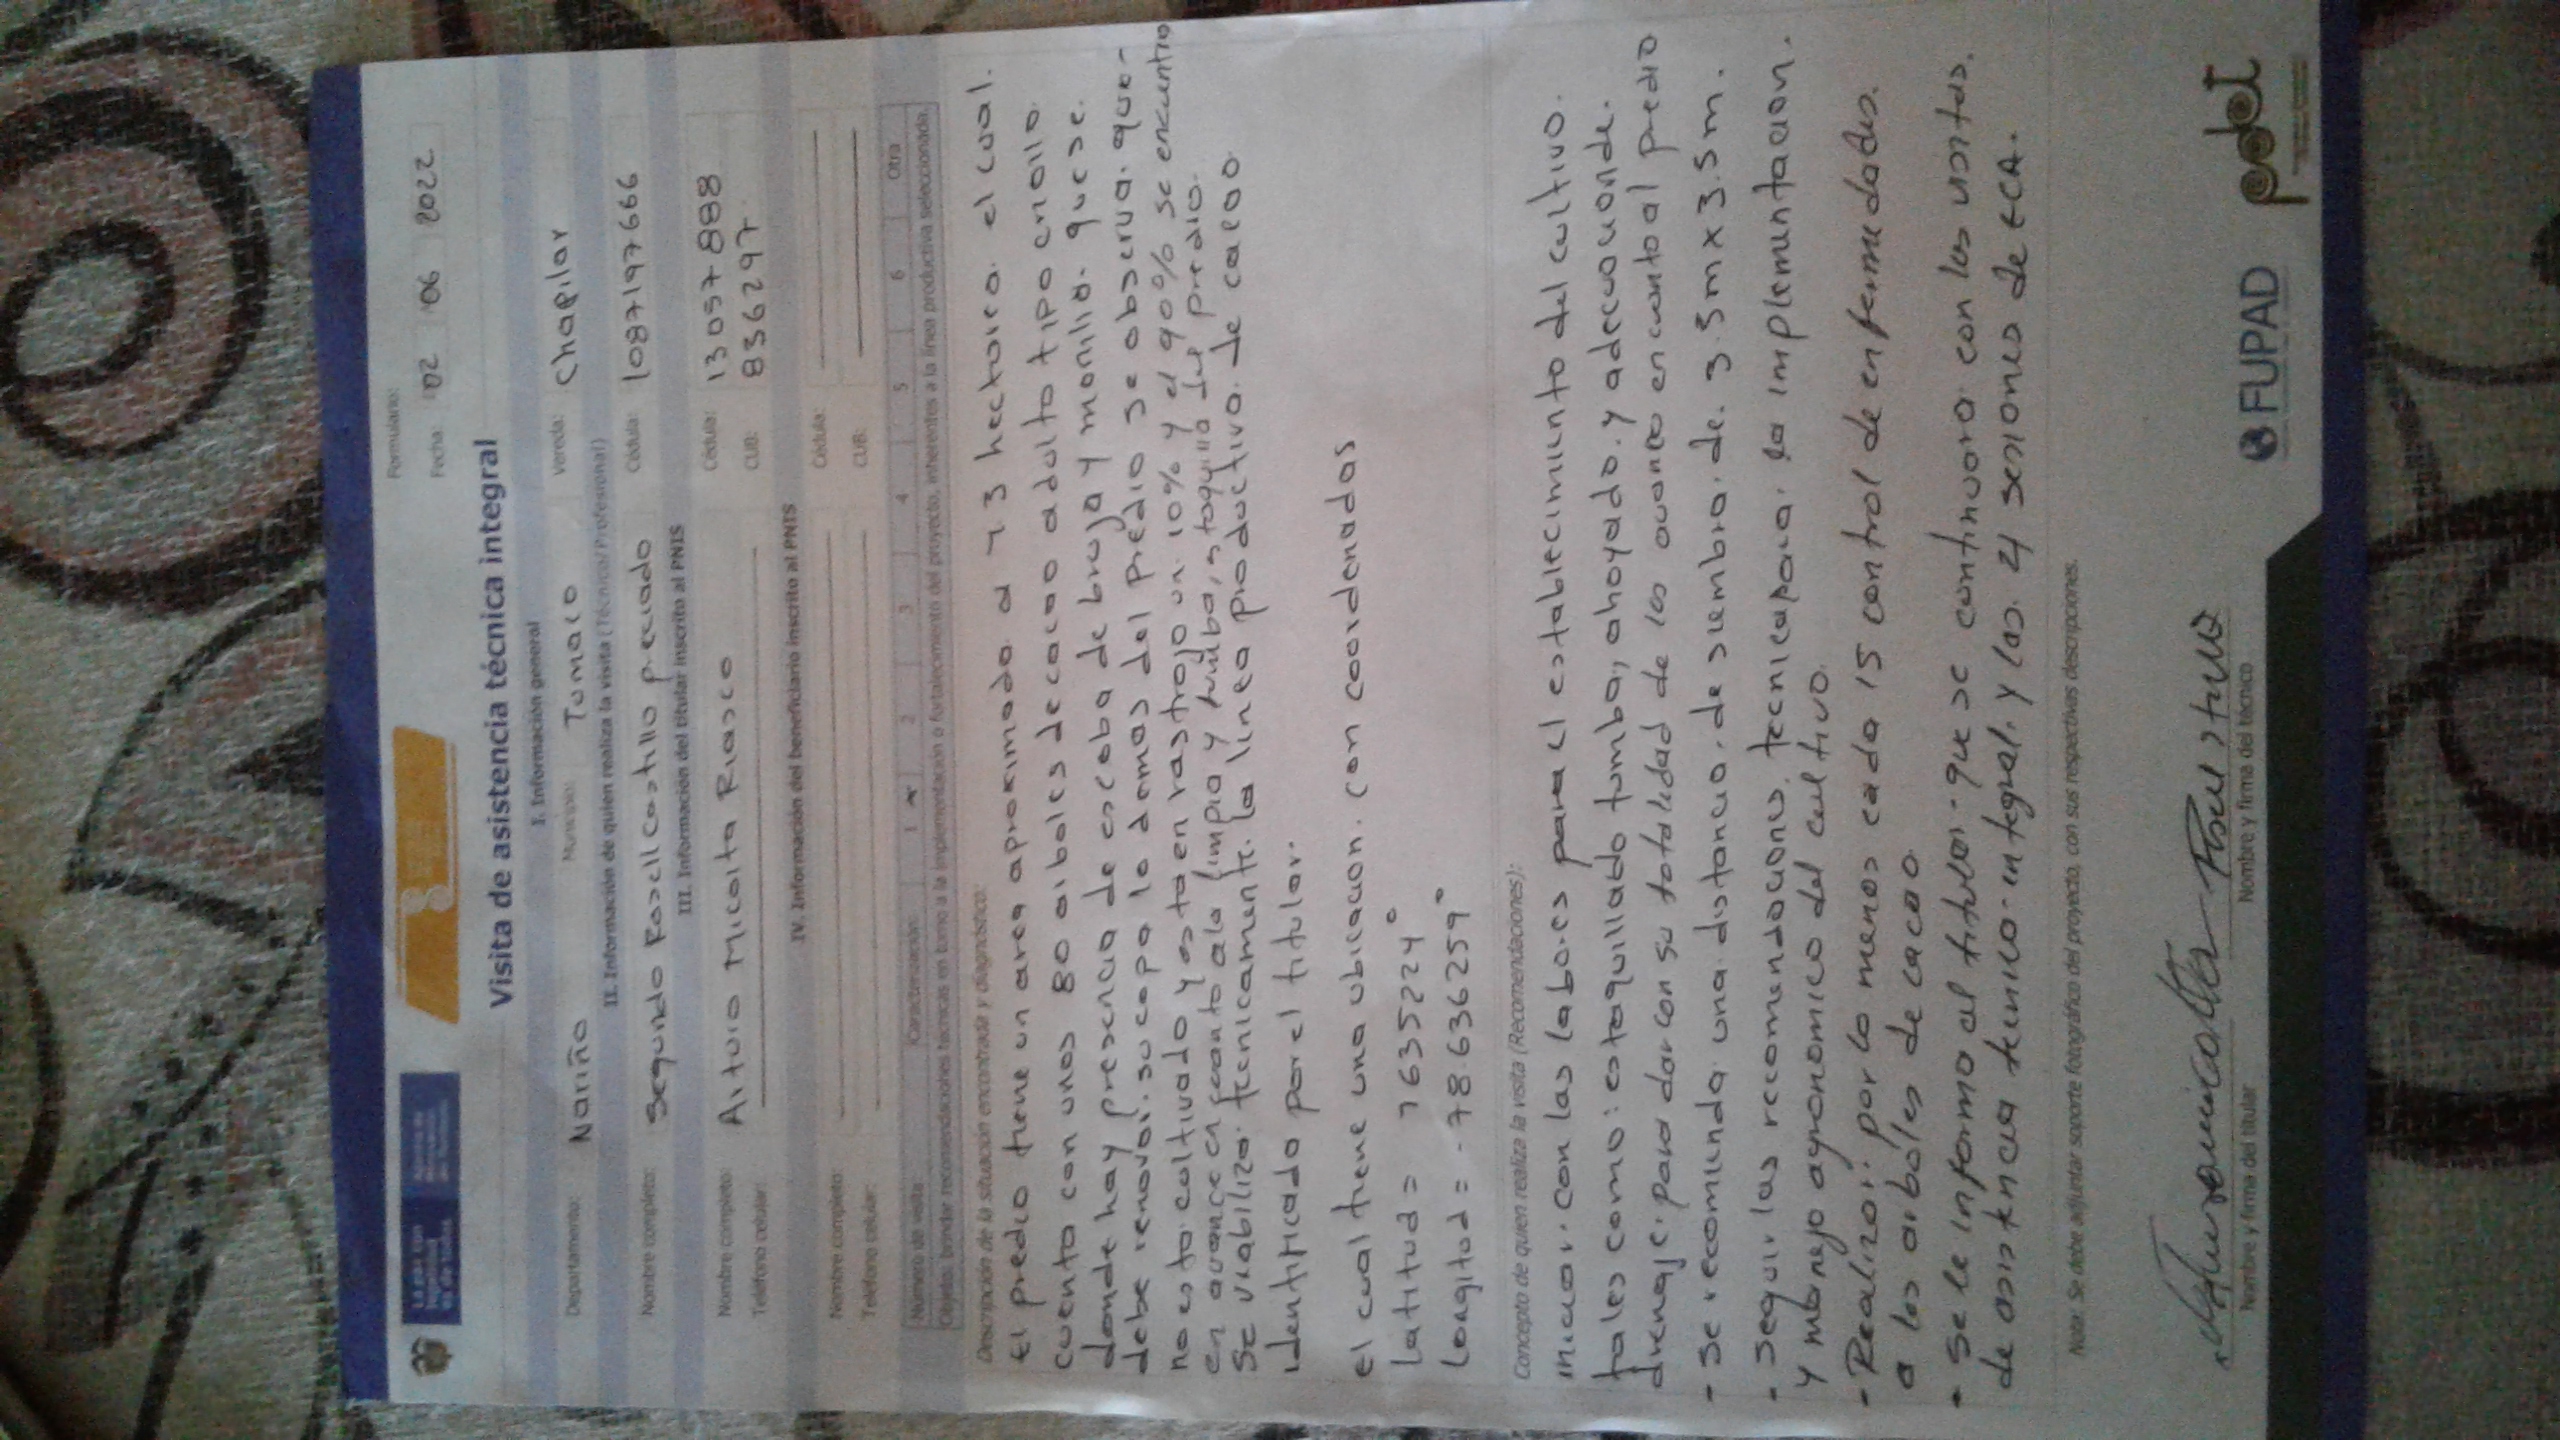 Formulario:
Fecha: 02 06 2022
Visita de asistencia técnica integral
I. Información general
Departamento: Nariño Municipio: Tumaco Vereda: Chapilar
II. Información de quien realiza la visita (Técnico/Profesional)
Nombre completo: Segundo Rosell Castillo preciado Cédula: 1087197666
III. Información del titular inscrito al PNIS
Nombre completo: Arturo Micolta Riasco Cédula: 13057888
Teléfono celular: CUB: 836297
IV. Información del beneficiario inscrito al PNIS
Nombre completo: Cédula:
Teléfono celular: CUB:
Número de visita: Caracterización: 1 x 2 3 4 5 6 Otra
Objeto: brindar recomendaciones técnicas en torno a la implementación o fortalecimiento del proyecto, inherentes a la línea productiva seleccionada.
Descripción de la situación encontrada y diagnóstico:
El predio tiene un area aproximada a 73 hectarea. el cual.
cuenta con unos 80 arboles de cacao adulto tipo criollo
donde hay presencia de escoba de bruja y monilia. que se.
debe renovar. su copa lo demas del predio se observa. que-
no esta cultivado y esta en rastrojo un 10% y el 90% se encuentra
en avance en cuanto ala limpia y tumba, estaquilla del predio.
Se viabilizo. tecnicamente. la linea productiva. de cacao
identificado por el titular.
el cual tiene una ubicacion. con coordenadas
Latitud = 7635224°
Longitud = -78.636259°
Concepto de quien realiza la visita (Recomendaciones):
iniciar. con las labores para el establecimiento del cultivo.
tales como: estaquillado tumba, ahoyado. y adecuacion de.
drenaje. para dar con su totalidad de los avance en cuanto al predio
- Se recomienda una distancia. de siembra. de. 3.5m x 3.5m.
- Seguir las recomendaciones. tecnica para. la implementacion.
y manejo agronomico del cultivo.
- Realizar. por lo menos cada 15 control de enfermedades.
a los arboles de cacao.
- Se le informo al titular. que se continuara con las visitas.
de asistencia tecnico integral. y las. 4 sesiones de ECA.
Nota: Se debe adjuntar soporte fotográfico del proyecto, con sus respectivas descripciones.
Nombre y firma del titular Nombre y firma del técnico
FUPAD pdet